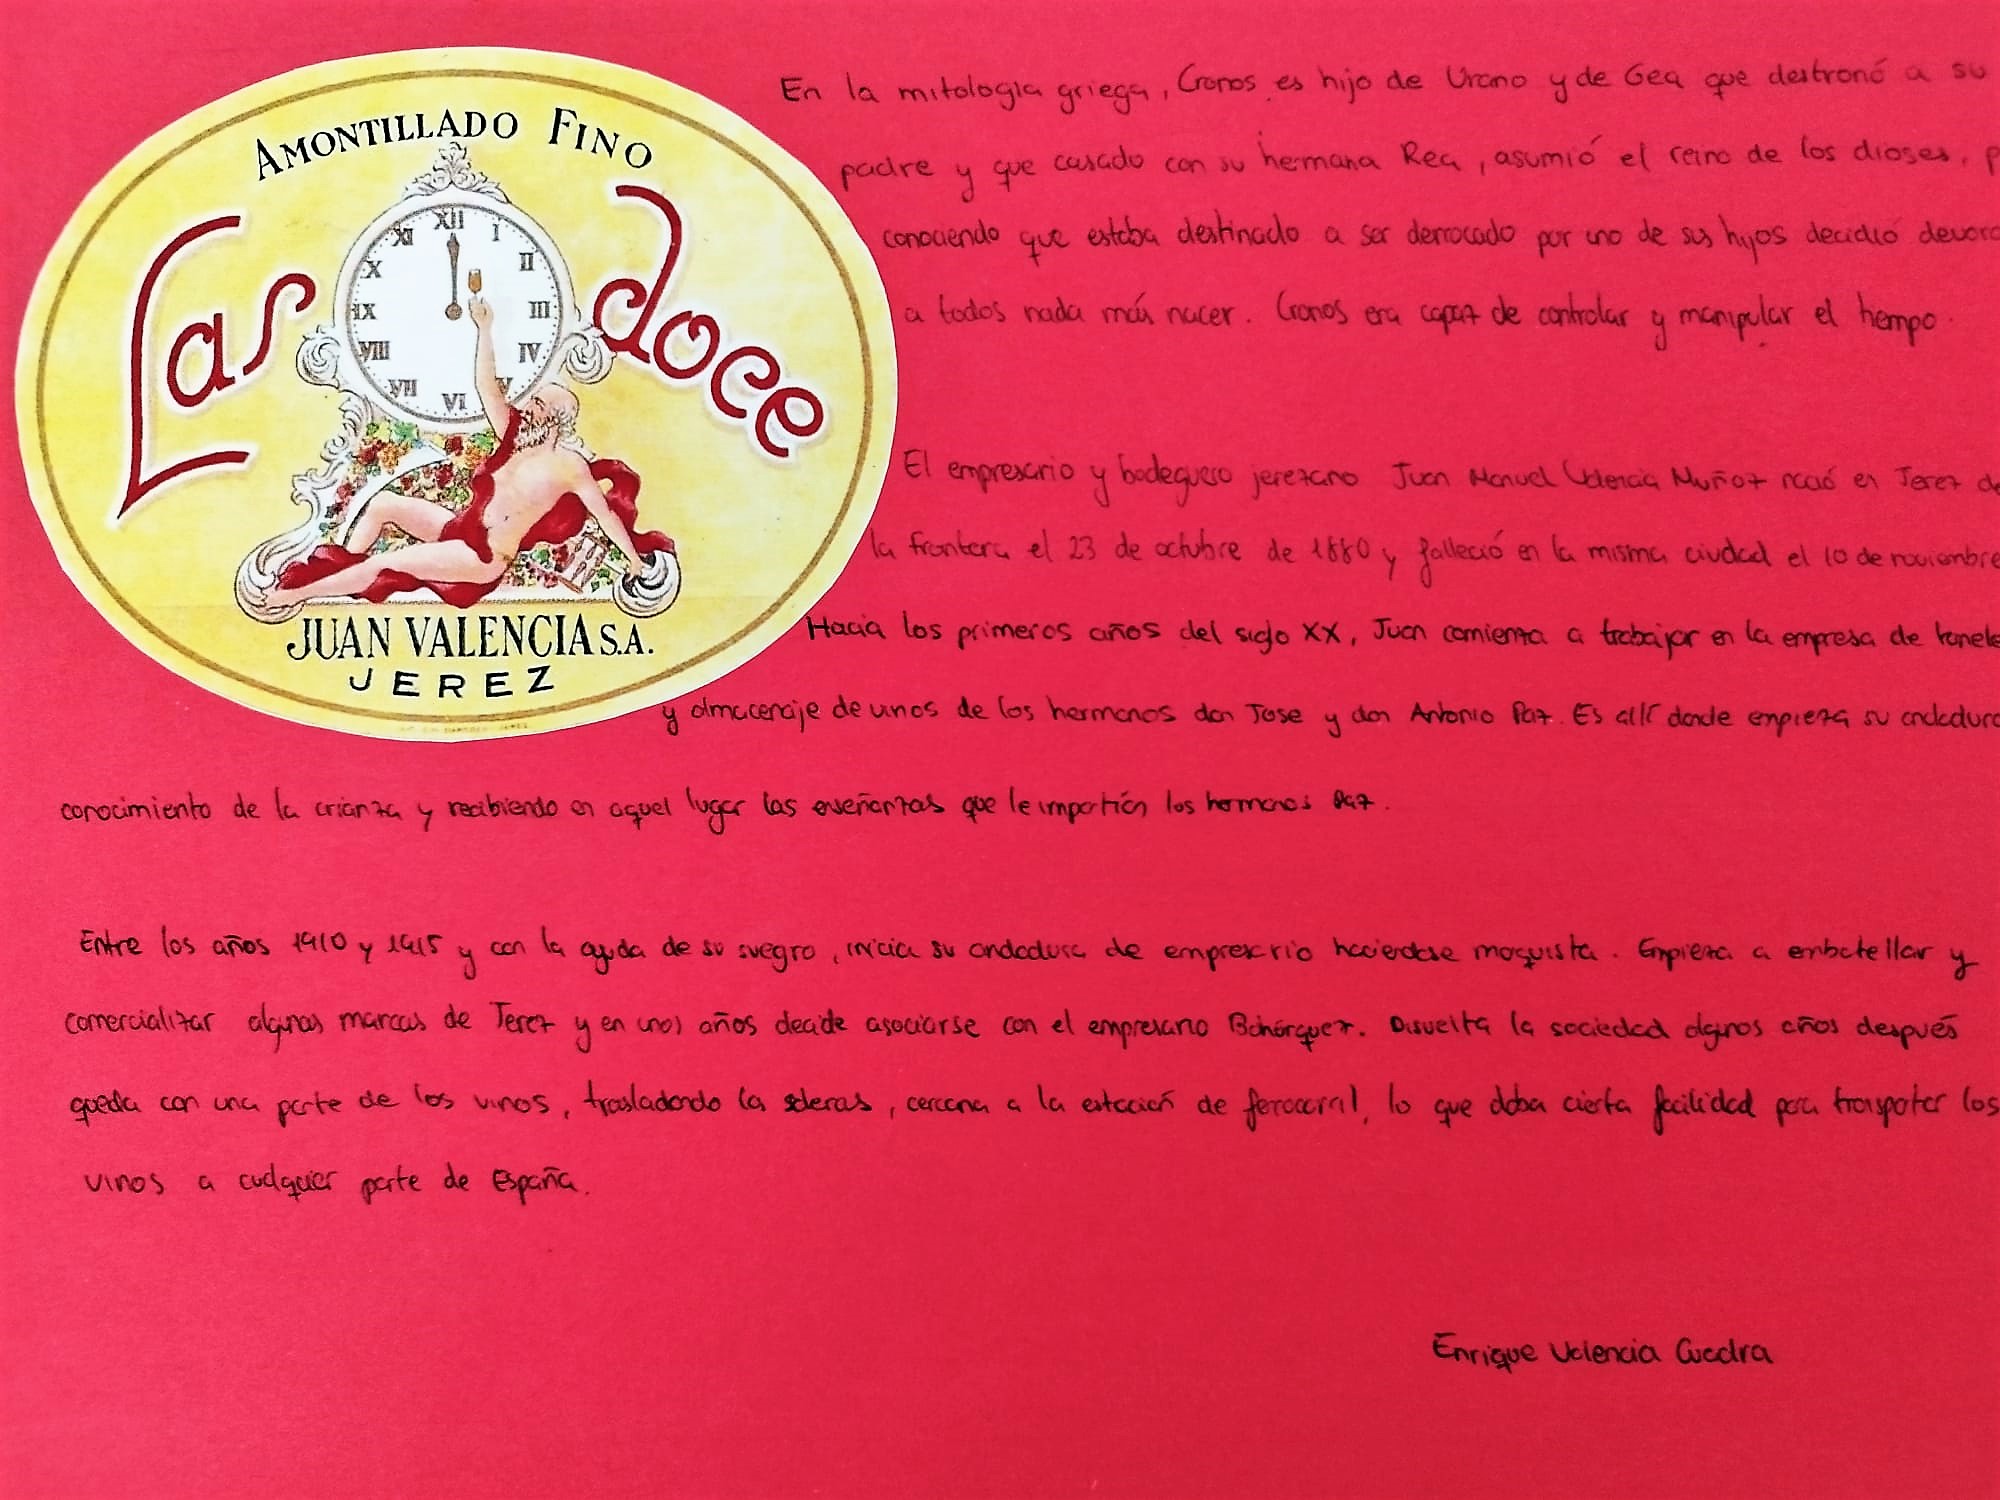 AMONTILLADO FINO
Las doce
XII
XI I
X II
IX III
VIII IV
VII V
VI
JUAN VALENCIA S.A.
JEREZ
En la mitologia griega, Cronos es hijo de Urano y de Gea que destronó a su
padre y que casado con su hermana Rea, asumió el reino de los dioses, p
conociendo que estaba destinado a ser derrocado por uno de sus hijos decidió devora
a todos nada más nacer. Cronos era capaz de controlar y manipular el tiempo.
El empresario y bodeguero jerezano Juan Manuel Valencia Muñoz nació en Jerez de
la frontera el 23 de octubre de 1880 y falleció en la misma ciudad el 10 de noviembre
Hacia los primeros años del siglo XX, Juan comienza a trabajar en la empresa de tonele
y almacenaje de vinos de los hermanos don Jose y don Antonio Paz. Es allí donde empieza su andadura
conocimiento de la crianza y recibiendo en aquel lugar las enseñanzas que le impartían los hermanos Paz.
Entre los años 1910 y 1915 y con la ayuda de su suegro, inicia su andadura de empresario haciendose maquista. Empieza a embotellar y
comercializar algunas marcas de Jerez y en unos años decide asociarse con el empresario Bohórquez. Disuelta la sociedad algunos años después
queda con una parte de los vinos, trasladando la soleras, cercana a la estación de ferrocarril, lo que daba cierta facilidad para transportar los
vinos a cualquier parte de España.
Enrique Valencia Cuadra